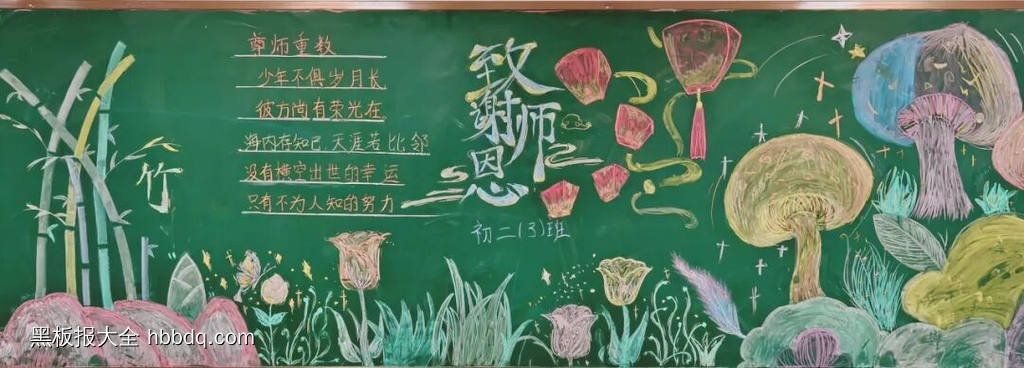 尊师重教
少年不惧岁月长
彼方尚有荣光在
海内存知己,天涯若比邻
没有横空出世的幸运
只有不为人知的努力
致谢师恩
初二(3)班
竹
黑板报大全 hbbdq.com